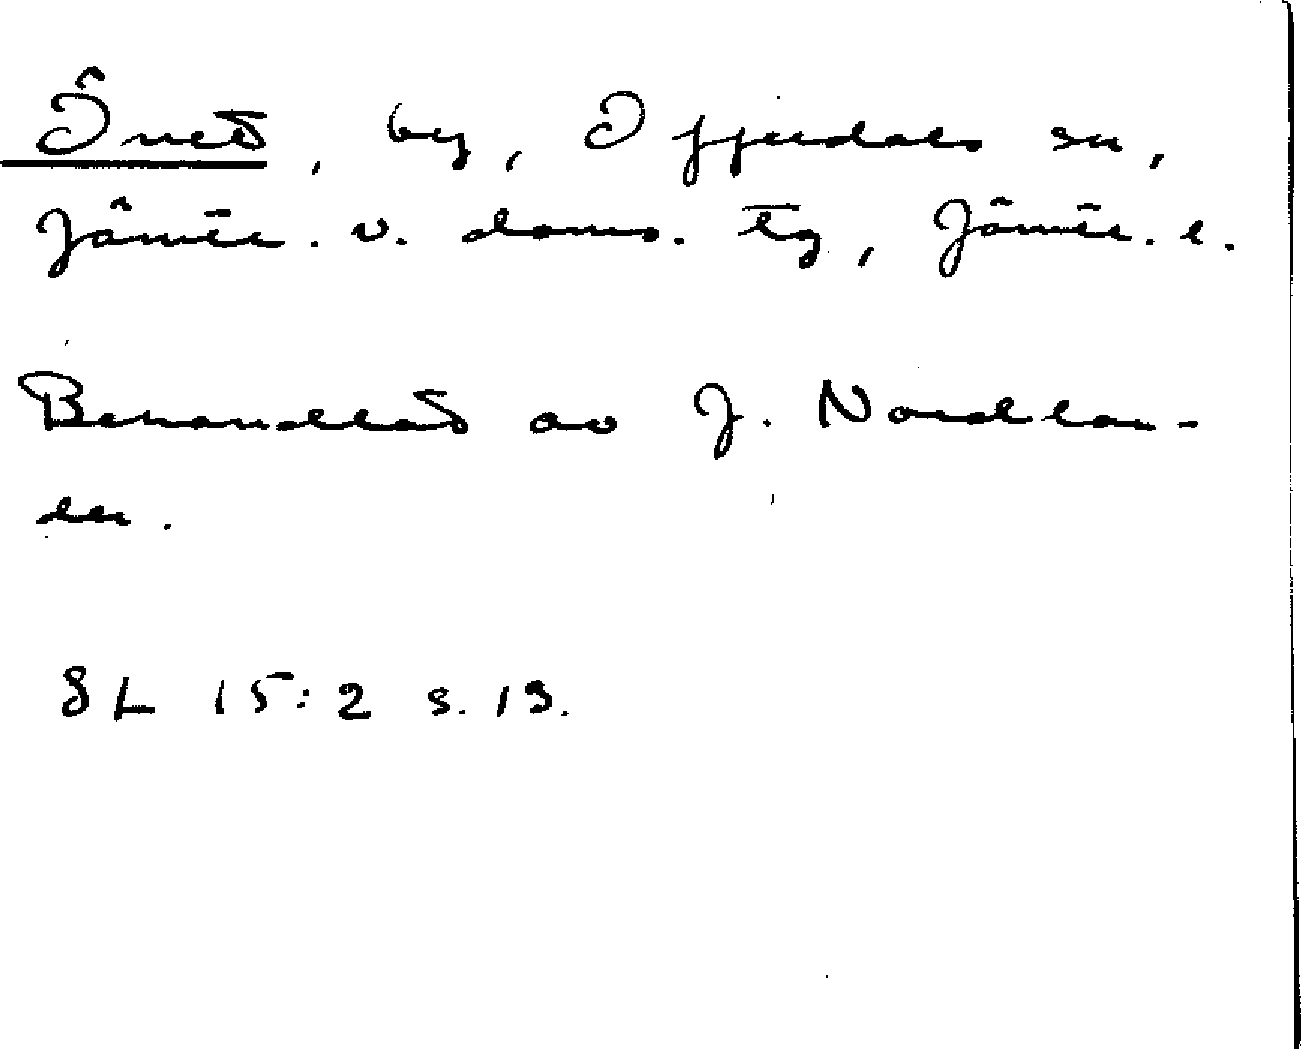 Önet, by, Offerdals sn,
Jämtl. v. doms. tg, Jämtl. l.
Behandlat av J. Nordlan-
der.
SL 15:2 s. 13.